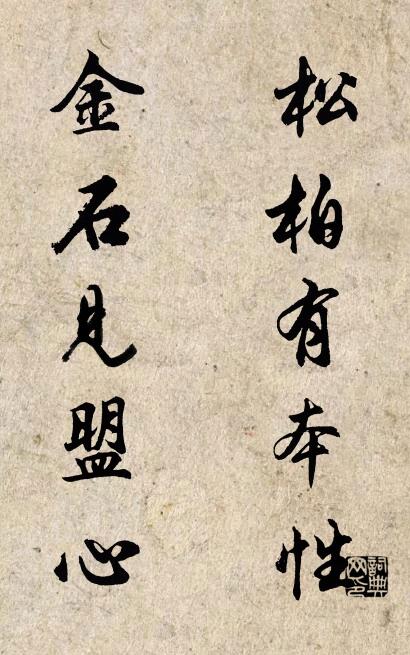 松柏有本性
金石见盟心
詞典网